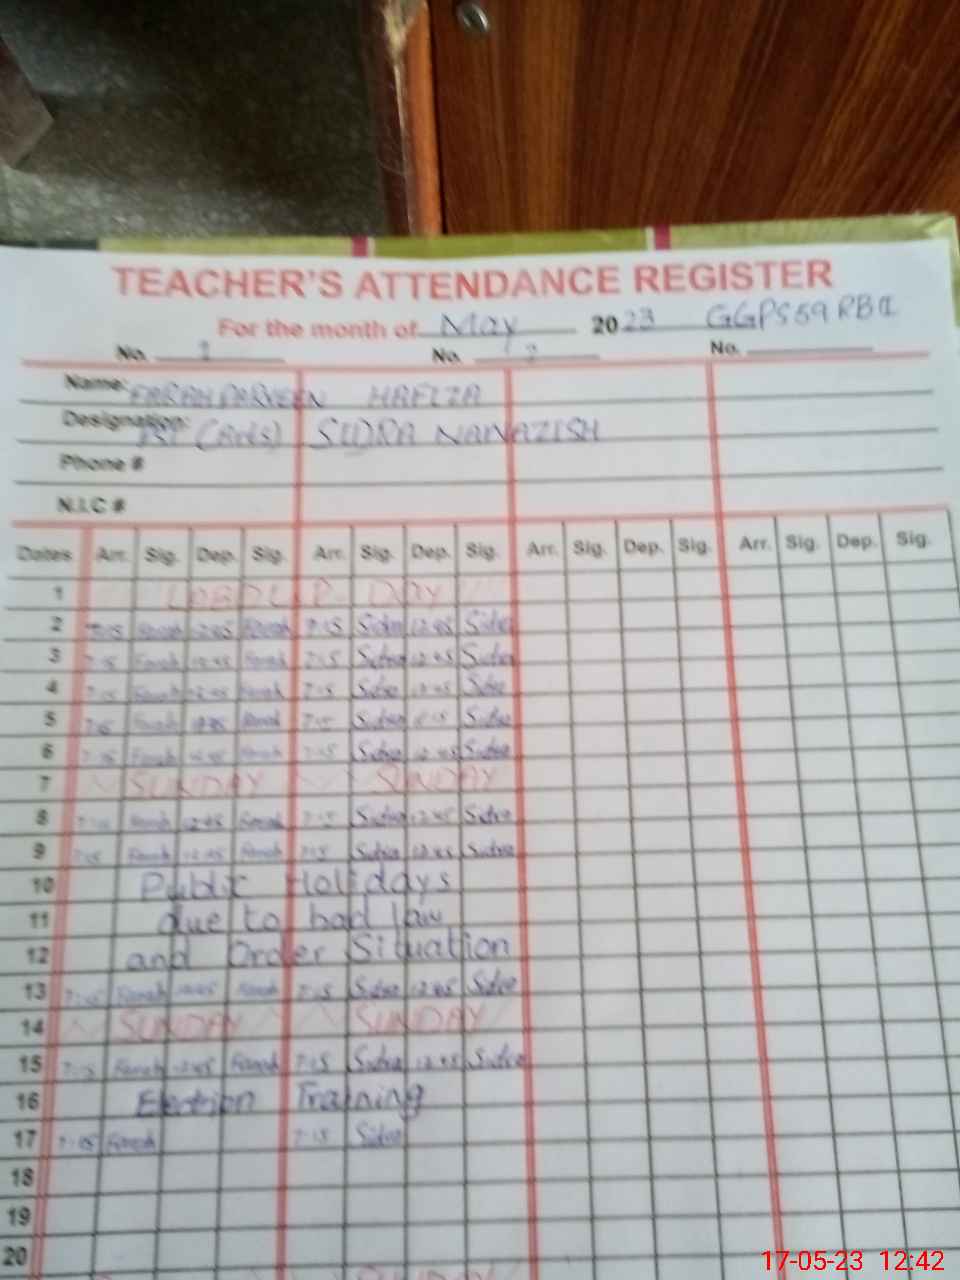 TEACHER'S ATTENDANCE REGISTER
For the month of May 2023 GGPS 59 RB
No. 1 No. 2 No.
Name: FARAH PARVEEN HAFIZA
Designation: PST (Arts) SIDRA NANAZISH
Phone #
N.I.C #
Dates Arr. Sig. Dep. Sig. Arr. Sig. Dep. Sig. Arr. Sig. Dep. Sig. Arr. Sig. Dep. Sig.
1 LABOUR DAY
2 7:15 Farah 12:45 Farah 7:15 Sidra 12:45 Sidra
3 7:15 Farah 12:45 Farah 7:15 Sidra 12:45 Sidra
4 7:15 Farah 12:45 Farah 7:15 Sidra 12:45 Sidra
5 Farah Farah Sidra Sidra
6 7:15 Farah Farah 7:15 Sidra 12:45 Sidra
7 SUNDAY SUNDAY
8 Farah 12:45 Farah 7:15 Sidra 12:45 Sidra
9 7:15 Farah 12:45 Farah 7:15 Sidra 12:45 Sidra
10 Public Holidays
11 due to bad law
12 and Order Situation
13 7:15 Farah 12:45 Farah 7:15 Sidra 12:45 Sidra
14 SUNDAY SUNDAY
15 7:15 Farah 12:45 Farah 7:15 Sidra 12:45 Sidra
16 Election Training
17 7:15 Farah 7:15 Sidra
18
19
20
SUNDAY
17-05-23 12:42